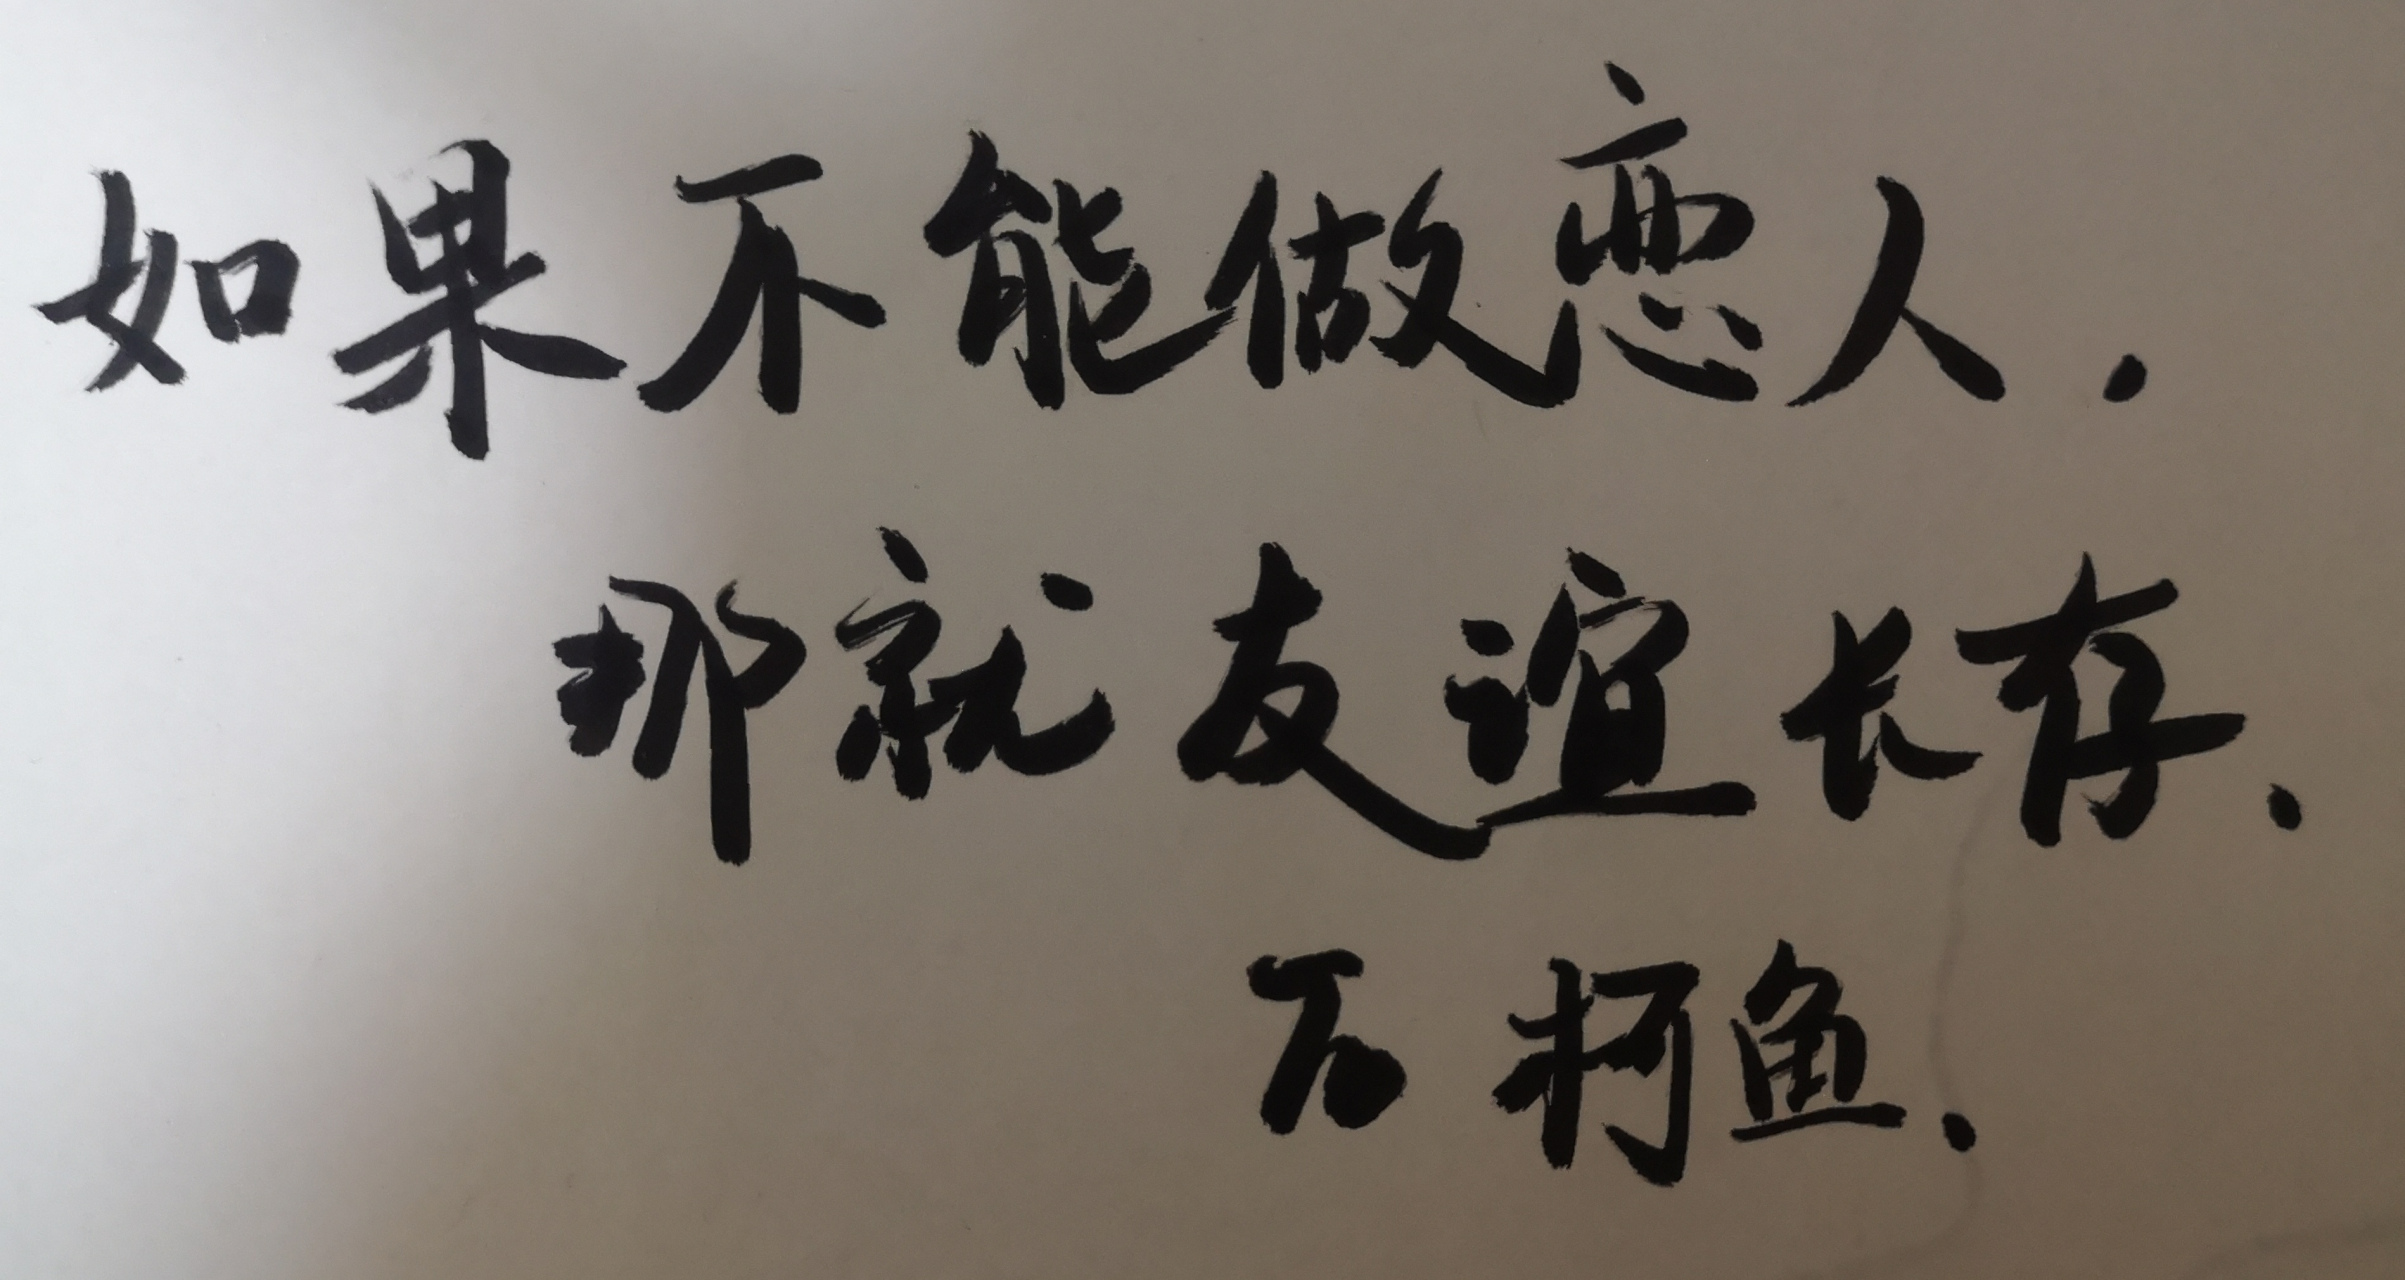 如果不能做恋人.
那就友谊长存.
柯鱼.